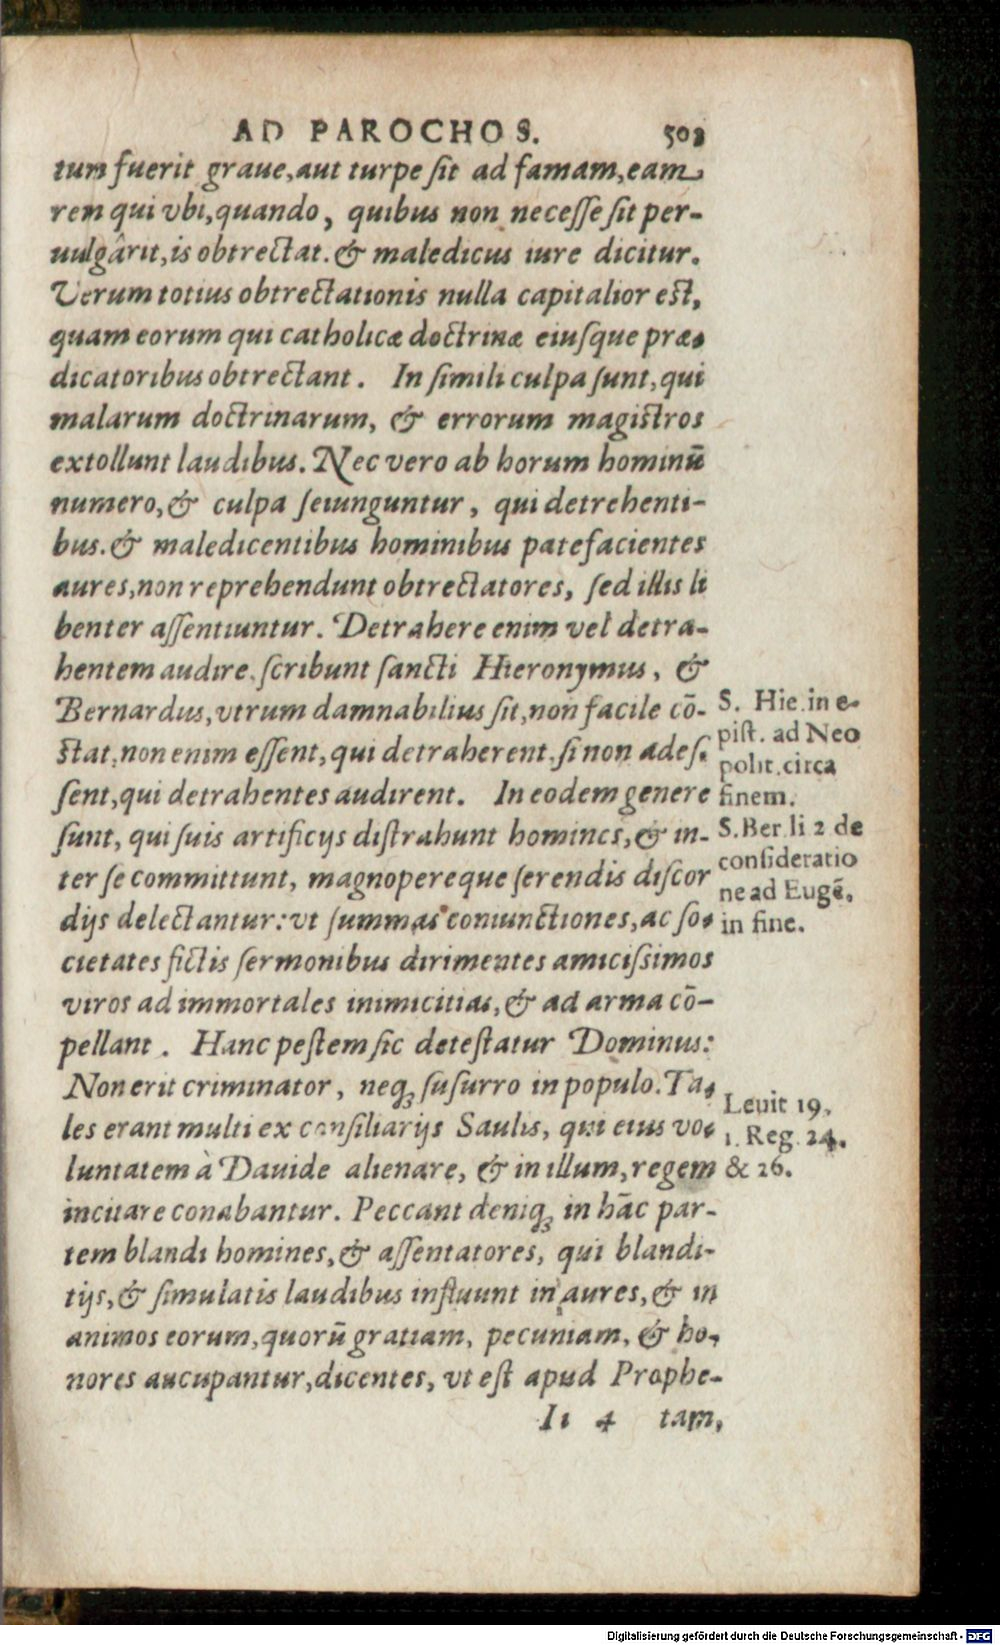 AD PAROCHOS. 503
tum fuerit graue, aut turpe sit ad famam, eam
rem qui vbi, quando, quibus non necesse sit per-
uulgârit, is obtrectat. & maledicus iure dicitur.
Verum totius obtrectationis nulla capitalior est,
quam eorum qui catholicæ doctrinæ eiusque præ-
dicatoribus obtrectant. In simili culpa sunt, qui
malarum doctrinarum, & errorum magistros
extollunt laudibus. Nec vero ab horum hominū
numero, & culpa seiunguntur, qui detrehenti-
bus. & maledicentibus hominibus patefacientes
aures, non reprehendunt obtrectatores, sed illis li
benter assentiuntur. Detrahere enim vel detra-
hentem audire, scribunt sancti Hieronymus, &
Bernardus, vtrum damnabilius sit, non facile cō-
stat, non enim essent, qui detraherent, si non ades-
sent, qui detrahentes audirent. In eodem genere
sunt, qui suis artificijs distrahunt homines, & in-
ter se committunt, magnopereque serendis discor
dijs delectantur: vt summas coniunctiones, ac so-
cietates fictis sermonibus dirimentes amicissimos
viros ad immortales inimicitias, & ad arma cō-
pellant. Hanc pestem sic detestatur Dominus:
Non erit criminator, neq́ꝫ susurro in populo. Ta-
les erant multi ex consiliarijs Saulis, qui eius vo-
luntatem à Dauide alienare, & in illum, regem
incitare conabantur. Peccant deniqꝫ in hāc par-
tem blandi homines, & assentatores, qui blandi-
tijs, & simulatis laudibus influunt in aures, & in
animos eorum, quorū gratiam, pecuniam, & ho-
nores aucupantur, dicentes, vt est apud Prophe-
Ii 4 tam,
S. Hie. in e-
pist. ad Neo
polit. circa
finem.
S. Ber. li 2 de
consideratio
ne ad Eugē.
in fine.
Leuit 19.
1. Reg. 24.
& 26.
Digitalisierung gefördert durch die Deutsche Forschungsgemeinschaft - DFG